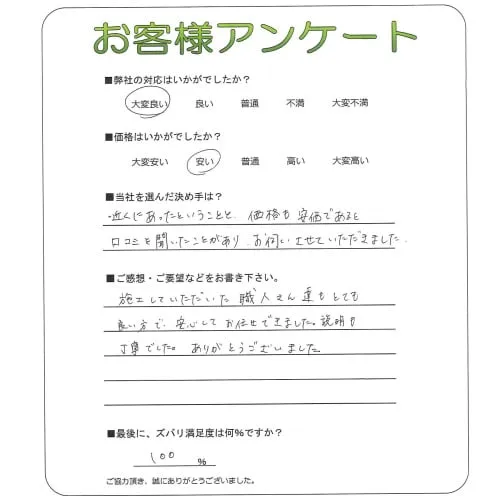 お客様アンケート
■弊社の対応はいかがでしたか？
大変良い 良い 普通 不満 大変不満
■価格はいかがでしたか？
大変安い 安い 普通 高い 大変高い
■当社を選んだ決め手は？
・近くにあったということと、価格も安価であると
口コミを聞いたことがあり、お伺いさせていただきました.
■ご感想・ご要望などをお書き下さい。
施工していただいた職人さん達もとても
良い方で、安心してお任せできました。説明も
丁寧でした。ありがとうございました。
■最後に、ズバリ満足度は何％ですか？
100 ％
ご協力頂き、誠にありがとうございました。